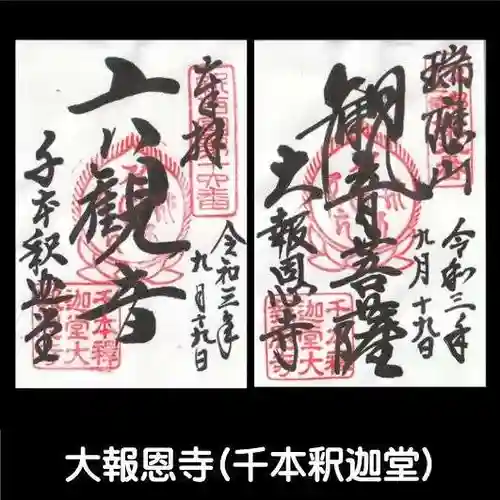 瑞應山
観音菩薩
大報恩寺
令和三年
九月十九日
奉拝
六観音
千本釈迦堂
令和三年
九月十九日
千本釋
迦堂大
千本釋
迦堂大
大報恩寺(千本釈迦堂)